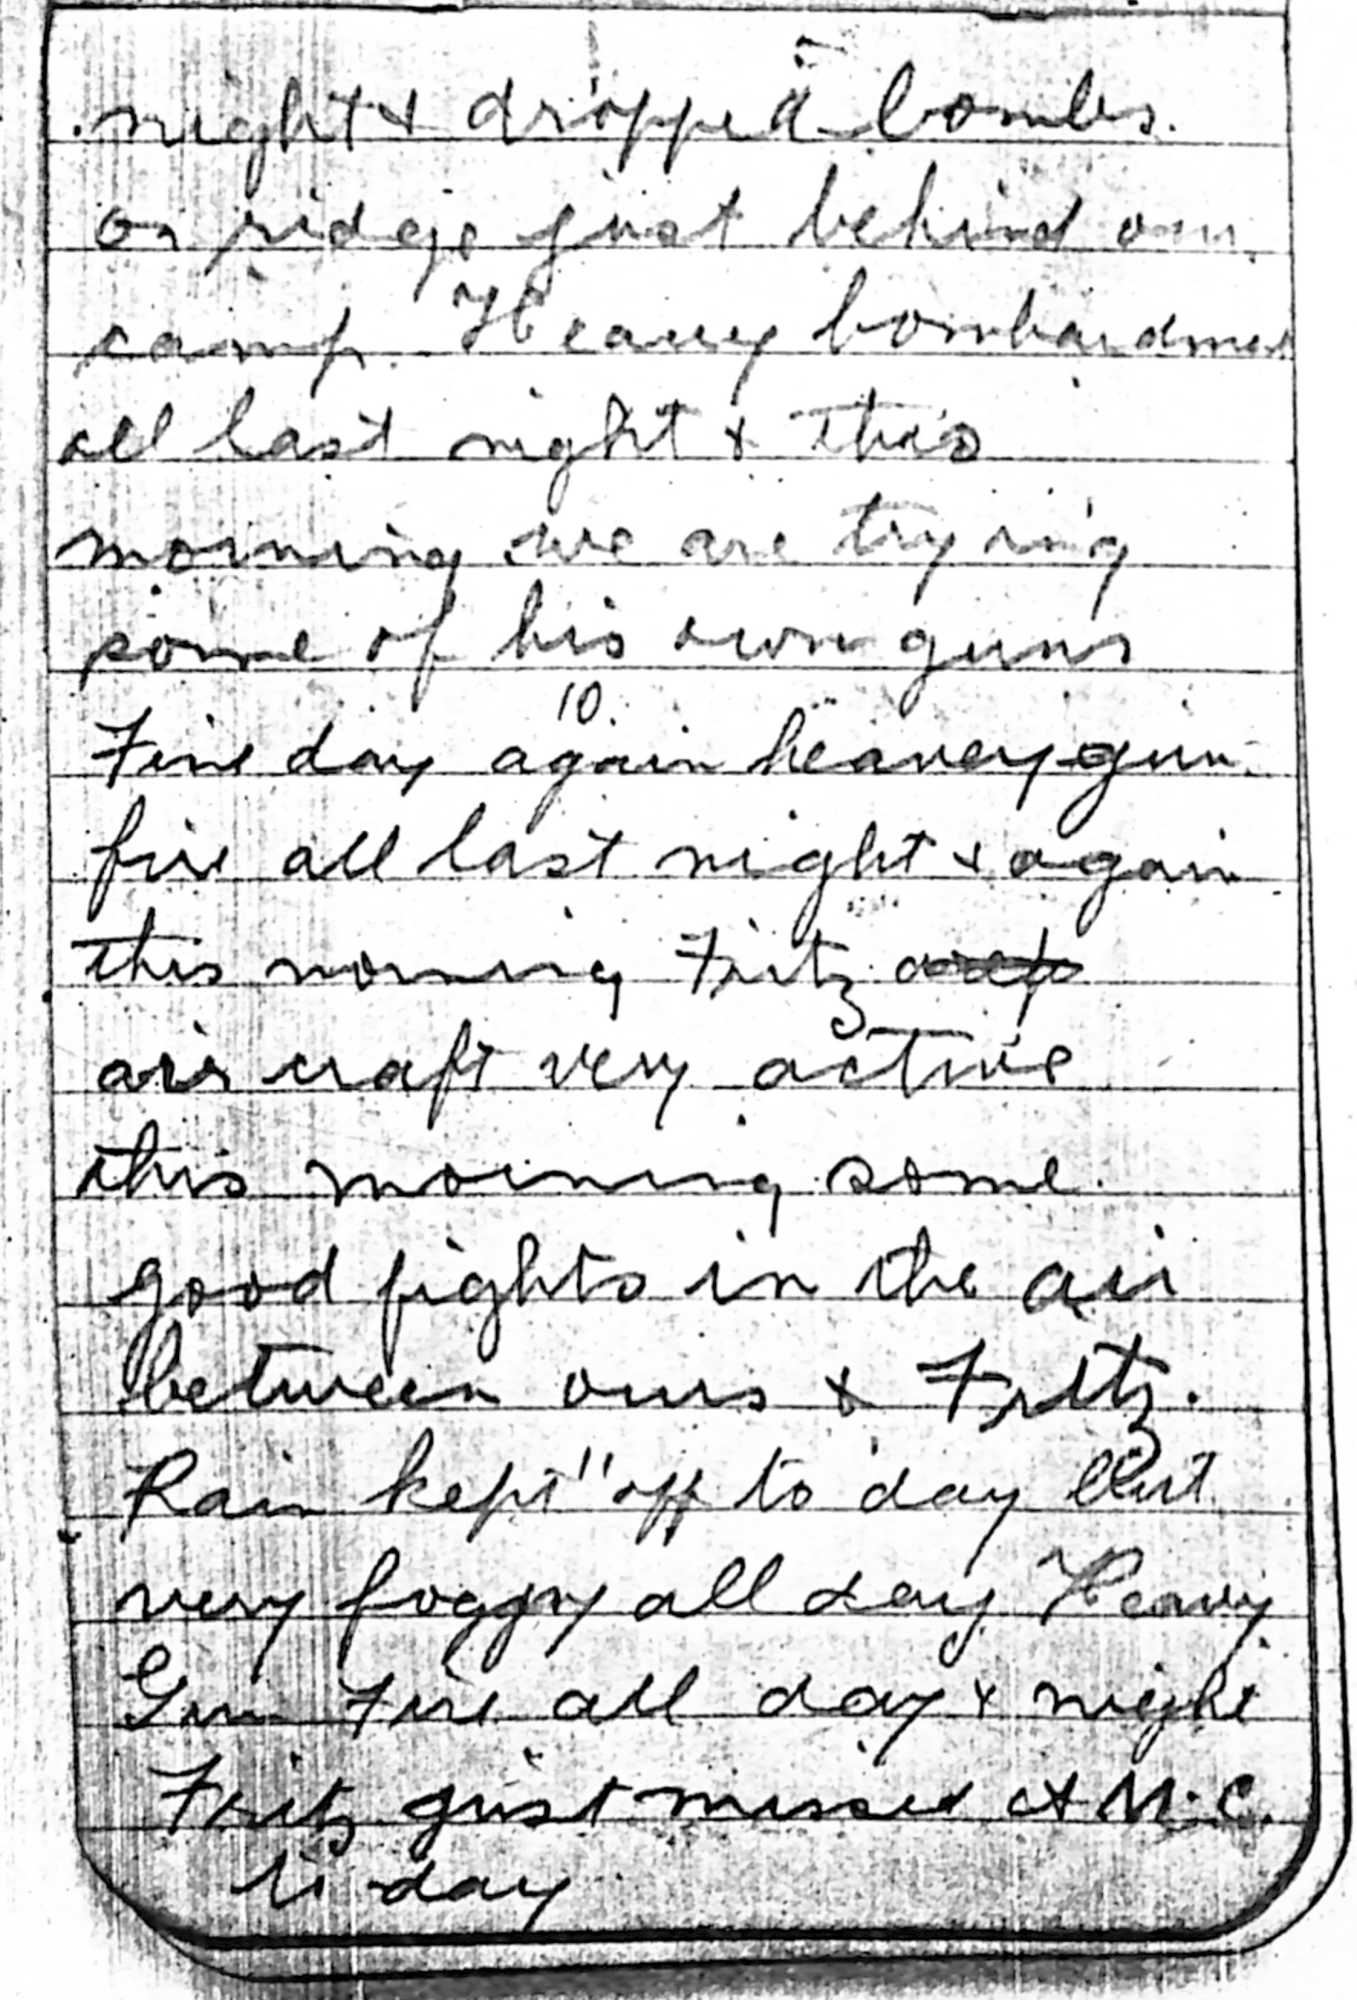 night & dropped bombs.
on ridge just behind our
camp. Heavy bombardmen
all last night & this
morning we are trying
some of his own guns
10.
Fine day again heavey gun
fire all last night & again
this morning Fritz
air craft very active
this morning some
good fights in the air
between ours & Fritz.
11
Rain kept off to day But
very foggy all day Heavy
Gun Fire all day & night
Fritz just missed M.C.
to day